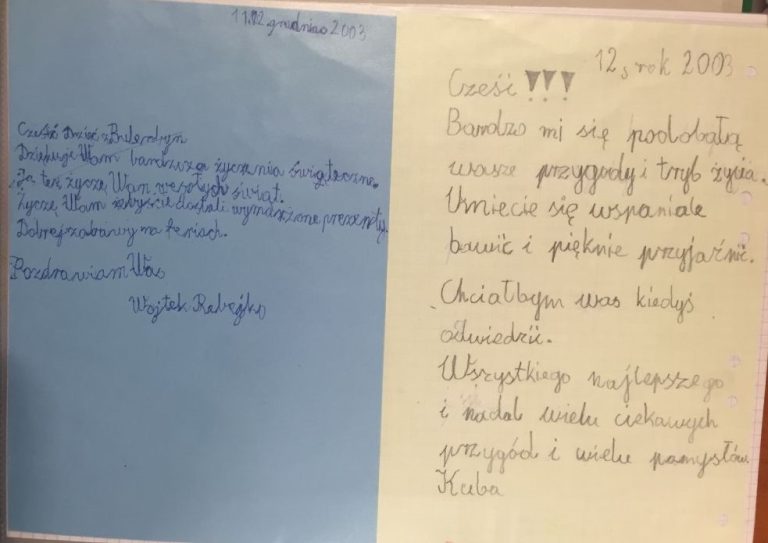 11.12 grudnia 2003
Cześć Dzieci z Bulerbyn
Dziękuję Wam bardzo za życzenia świąteczne.
Ja też życzę Wam wesołych świąt.
Życzę Wam żebyście dostali wymażone prezenty.
Dobrej zabawy na feriach.
Pozdrawiam Was
Wojtek
12, rok 2003
Cześć !!!
Bardzo mi się podobałą
wasze przygody i tryb życia.
Umiecie się wspaniale
bawić i pięknie przyjaźnić.
Chciałbym was kiedyś
odwiedzić.
Wszystkiego najlepszego
i nadal wielu ciekawych
przygód i wielu pomysłów
Kuba